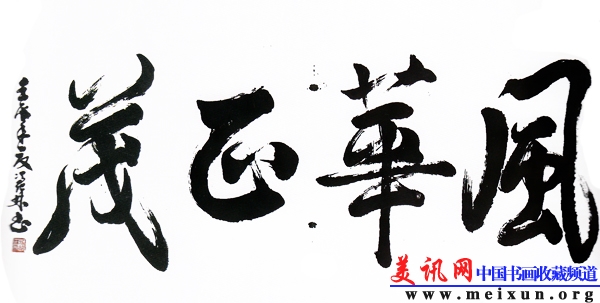 風華正茂
美讯网 中国书画收藏频道
www.meixun.org